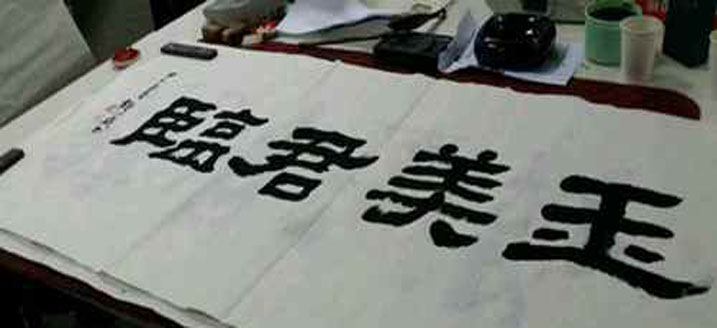 玉美君臨